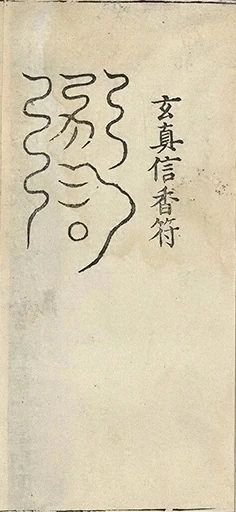 玄真信香符